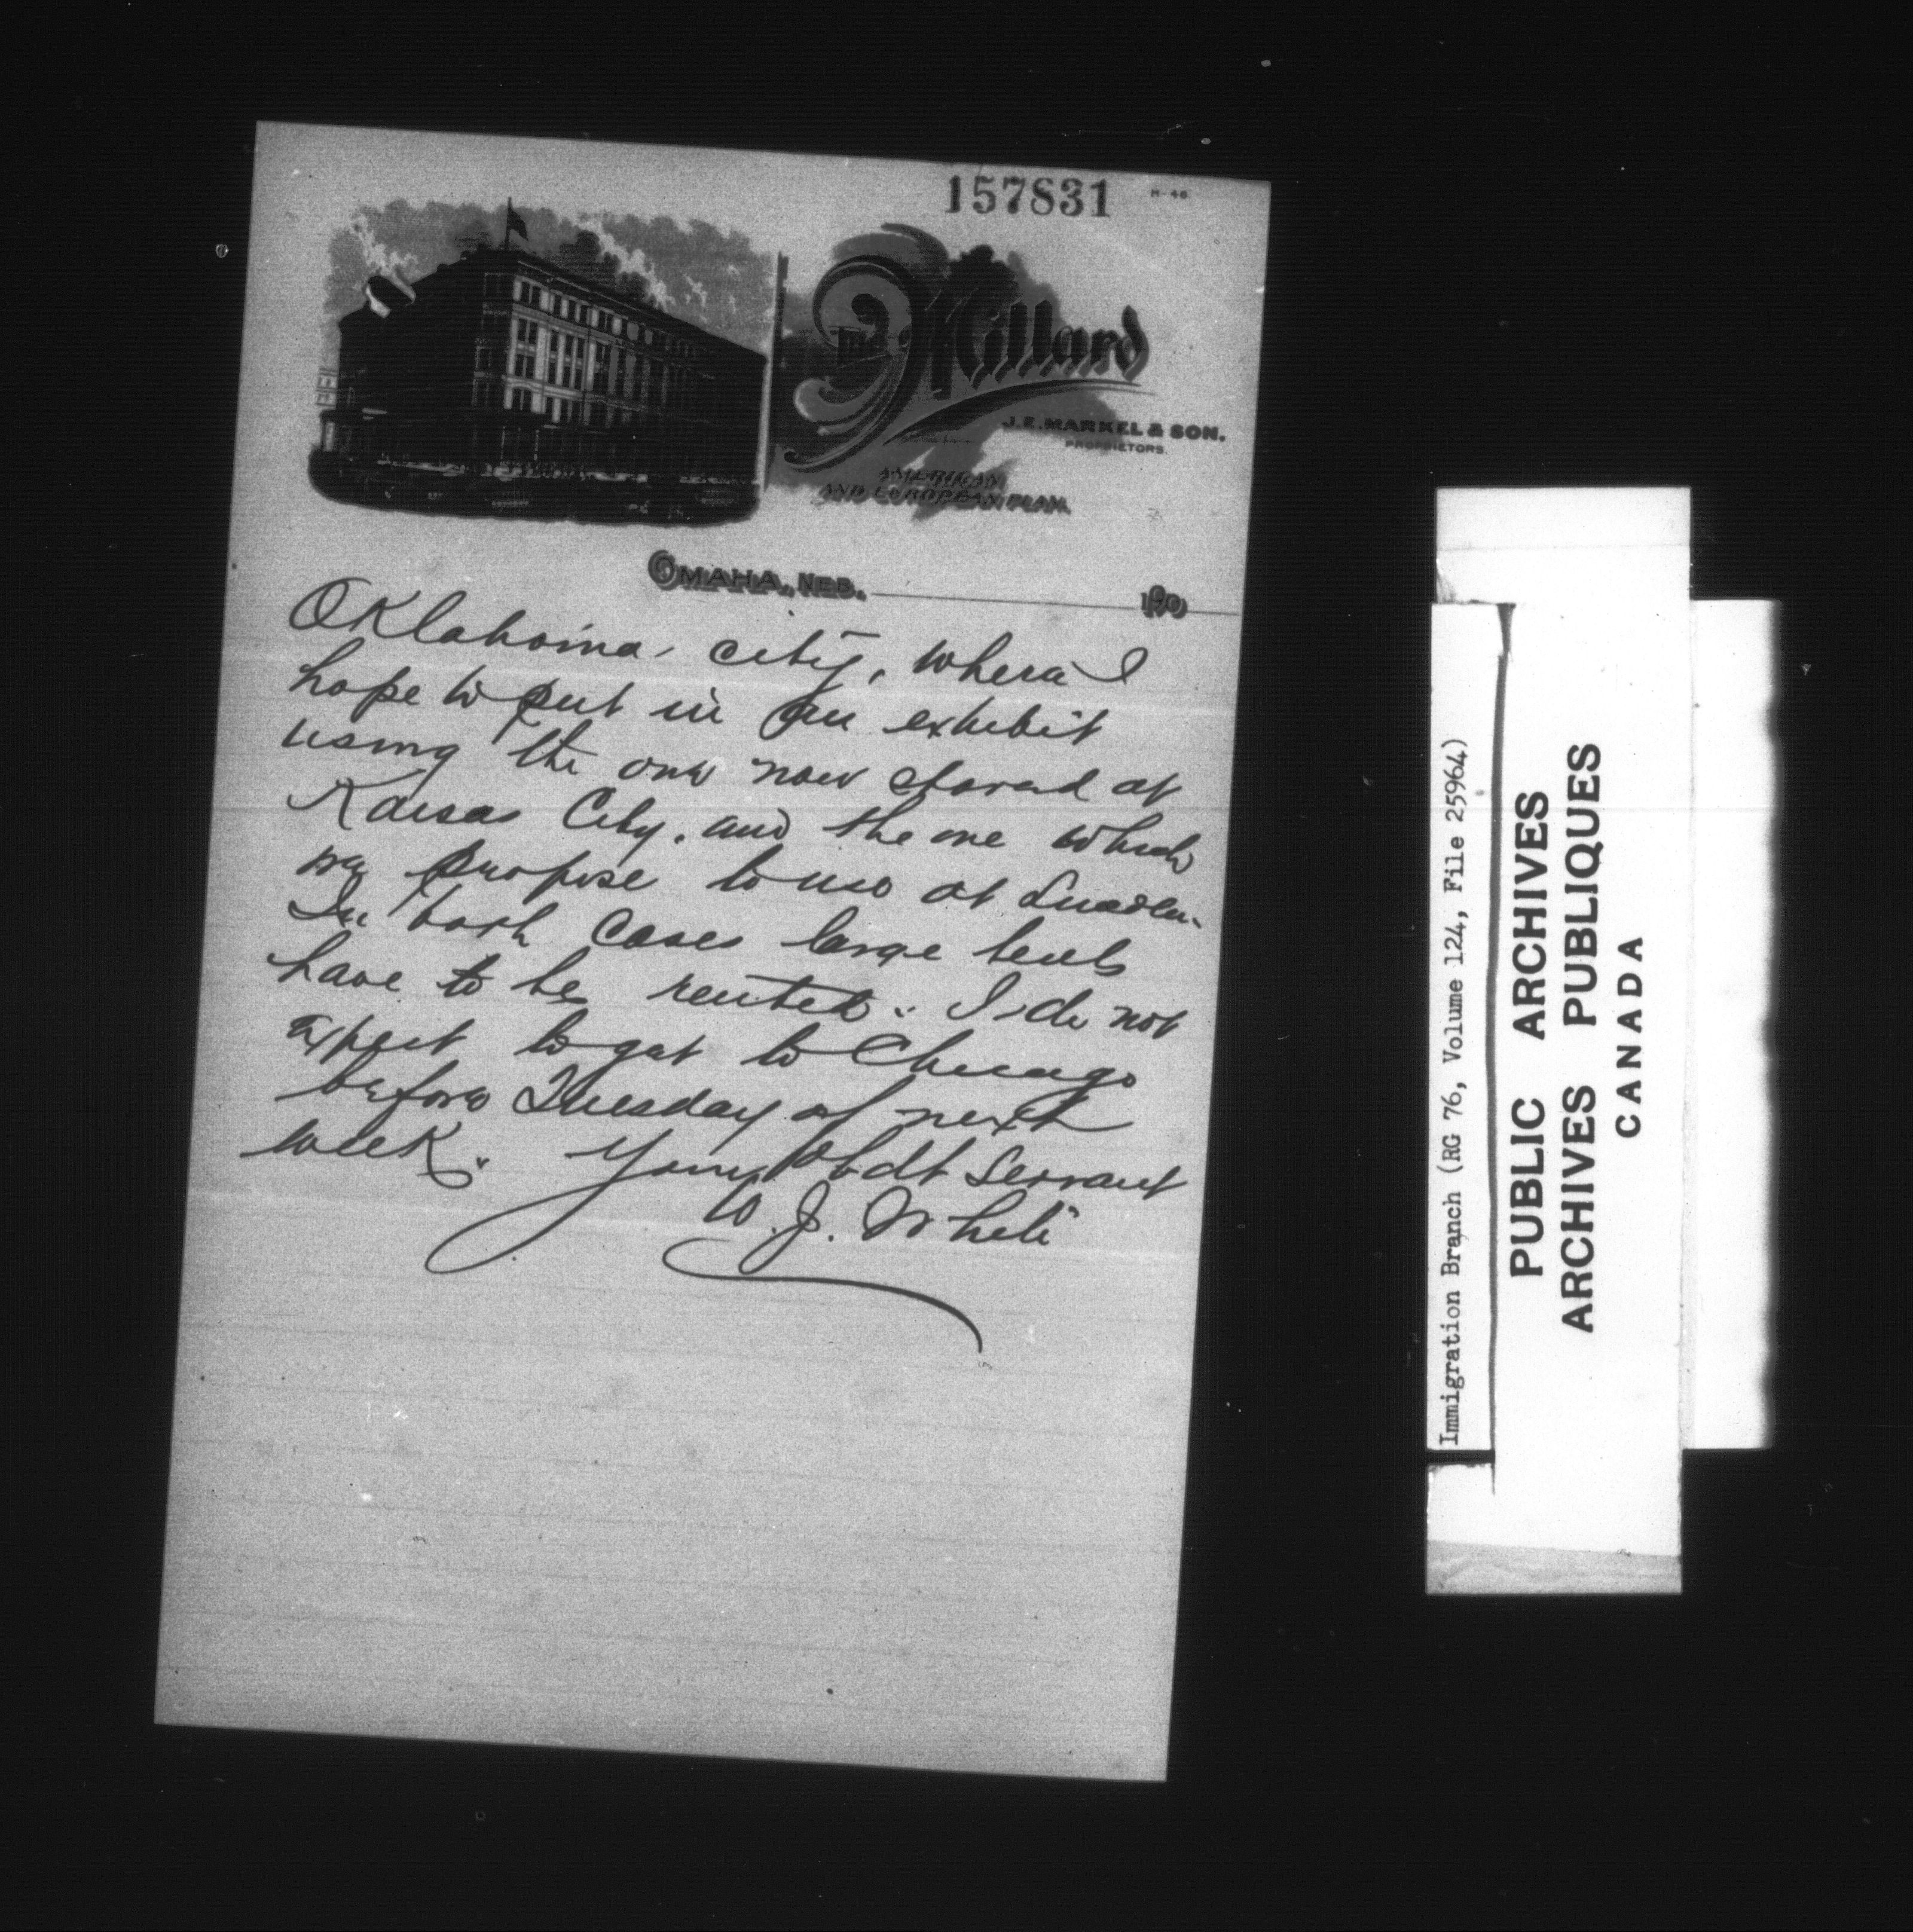 157831
H-46
The Millard
J.E. MARKEL & SON.
PROPRIETORS
AMERICAN
AND EUROPEAN PLAN.
OMAHA, NEB. 190
Oklahoma city, where I
hope to put in an exhibit
using the one now stored at
Kansas City. and the one which
we propose to use at
In both cases large tents
have to be rented. I do not
expect to get to Chicago
before Tuesday of next
week. Your Obdt Servant
W. J. White
Immigration Branch (RG 76, Volume 124, File 25964)
PUBLIC ARCHIVES
ARCHIVES PUBLIQUES
CANADA